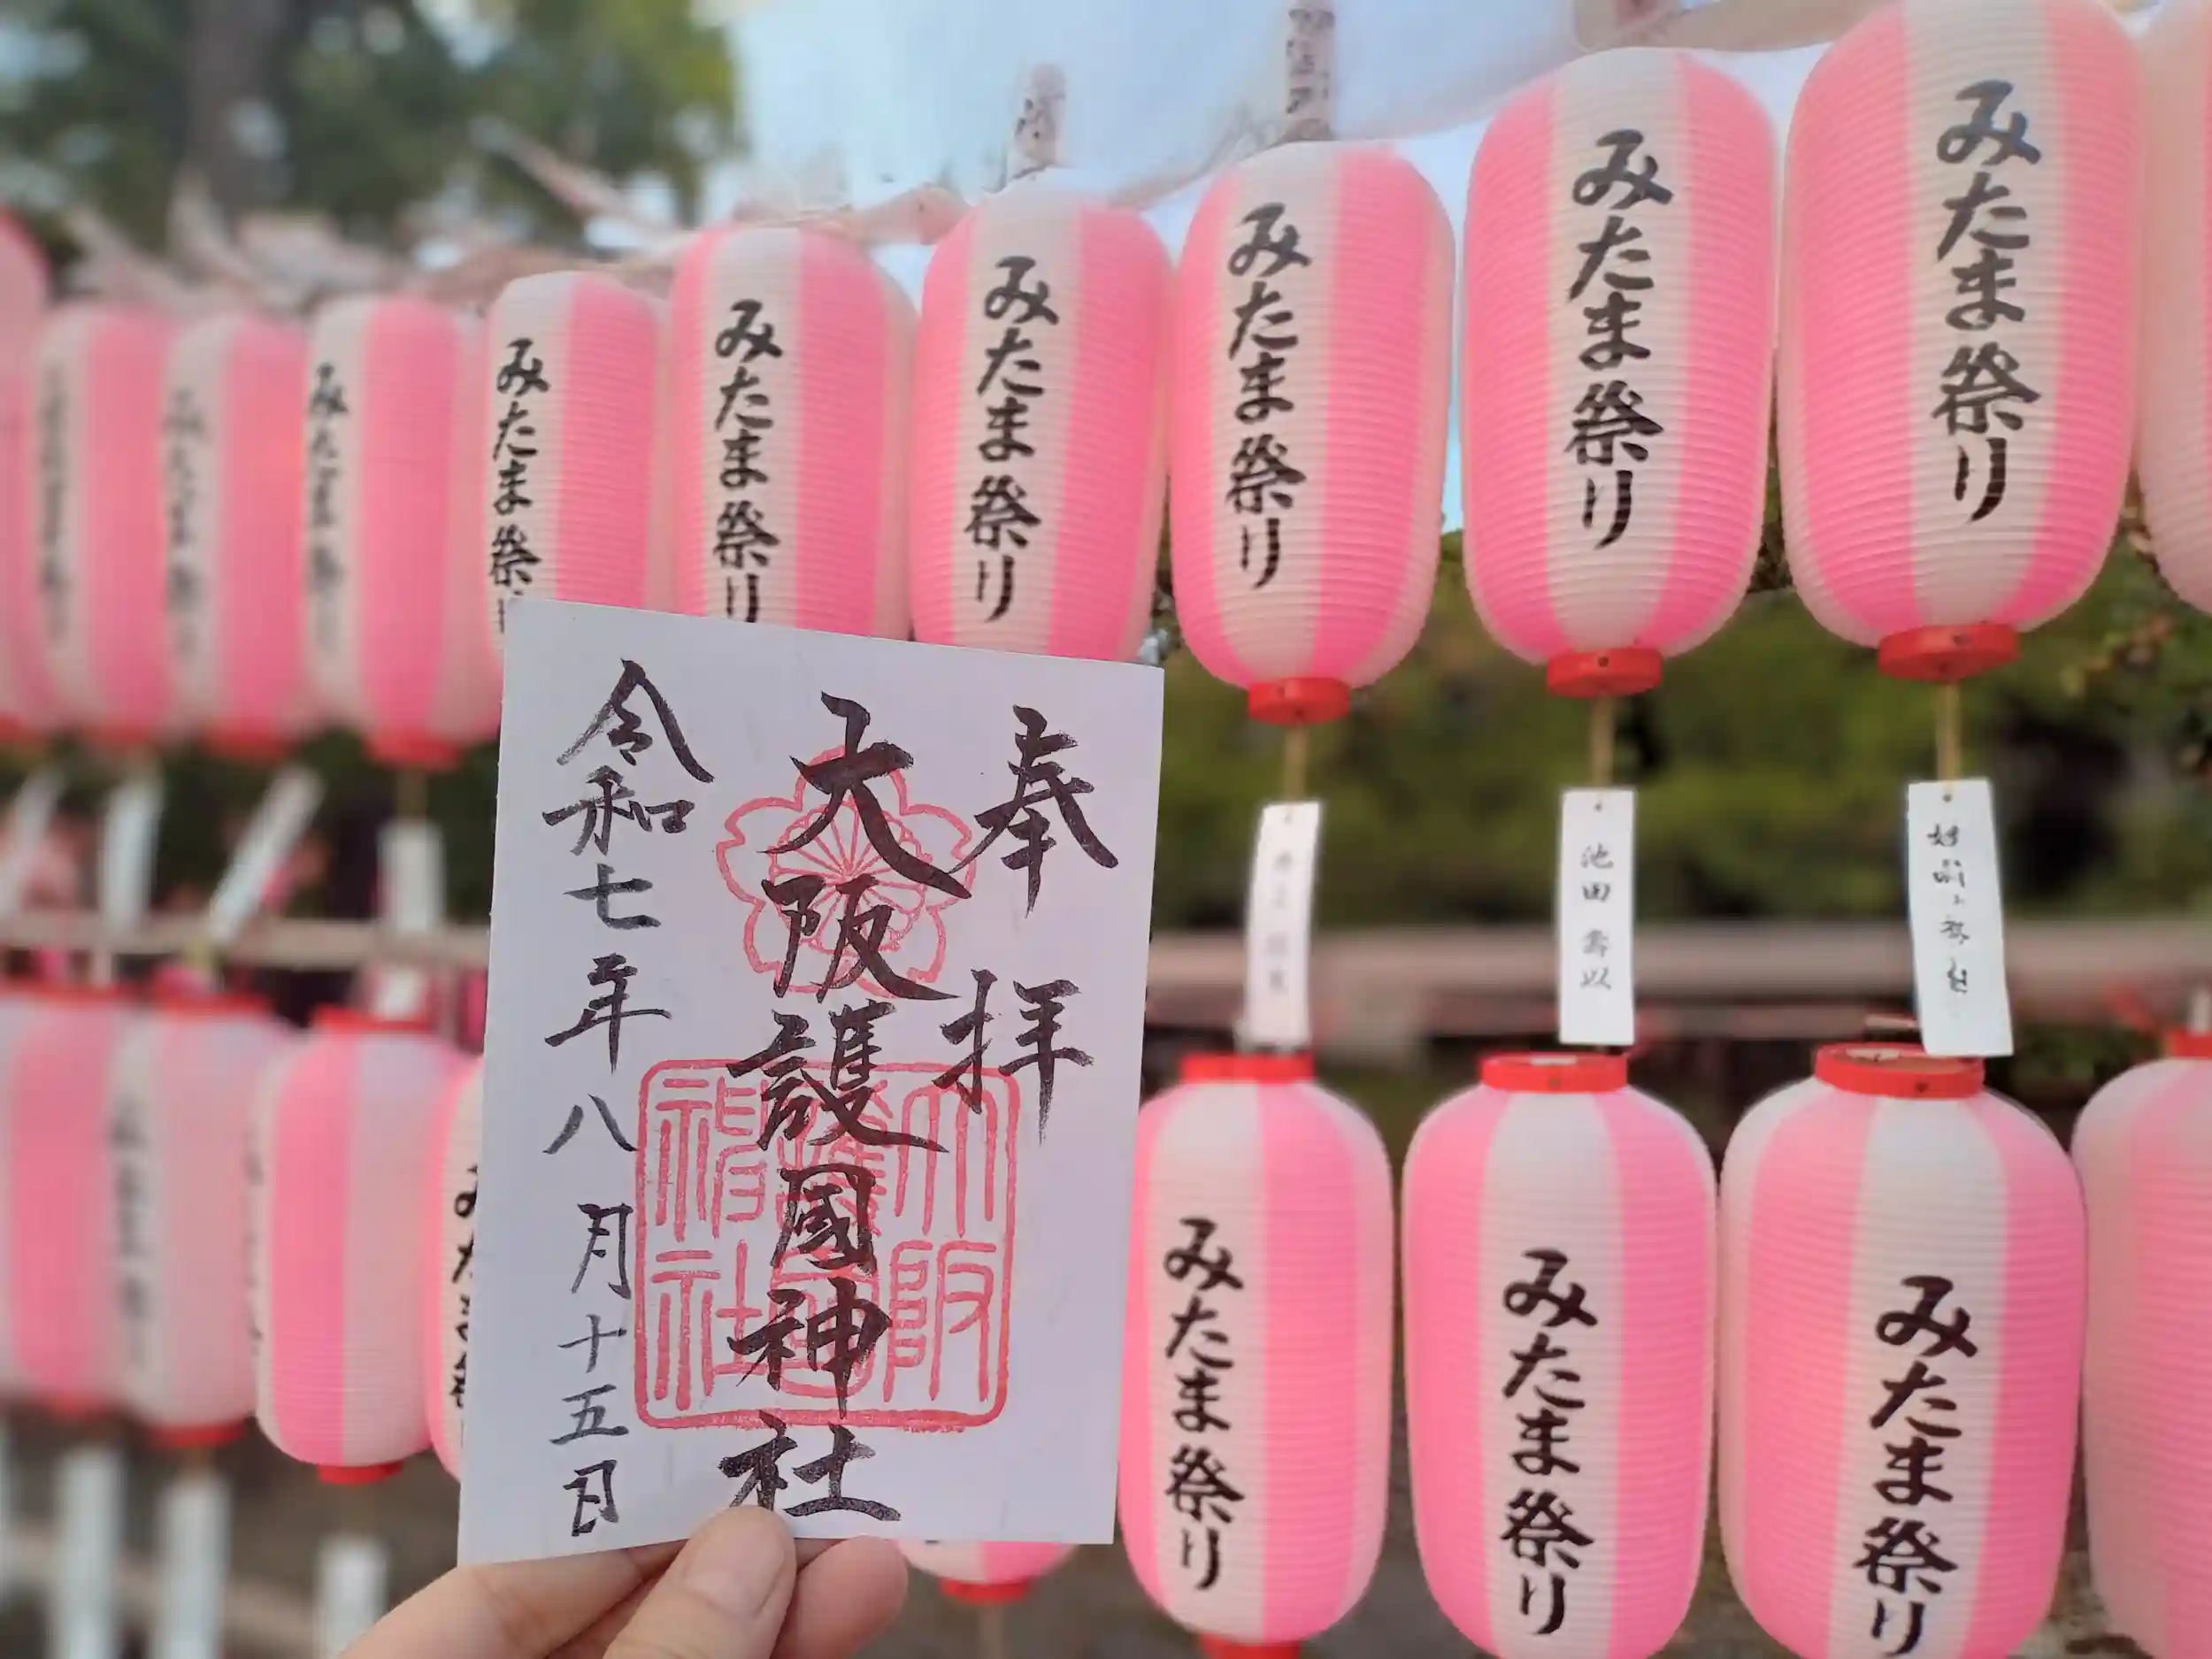 みたま祭り
みたま祭り
みたま祭り
みたま祭り
みたま祭り
みたま祭り
みたま祭
奉拝
大阪護國神社
令和七年八月十五日
大阪
護国
神社
池田
みたま祭り
みたま祭り
みたま祭り